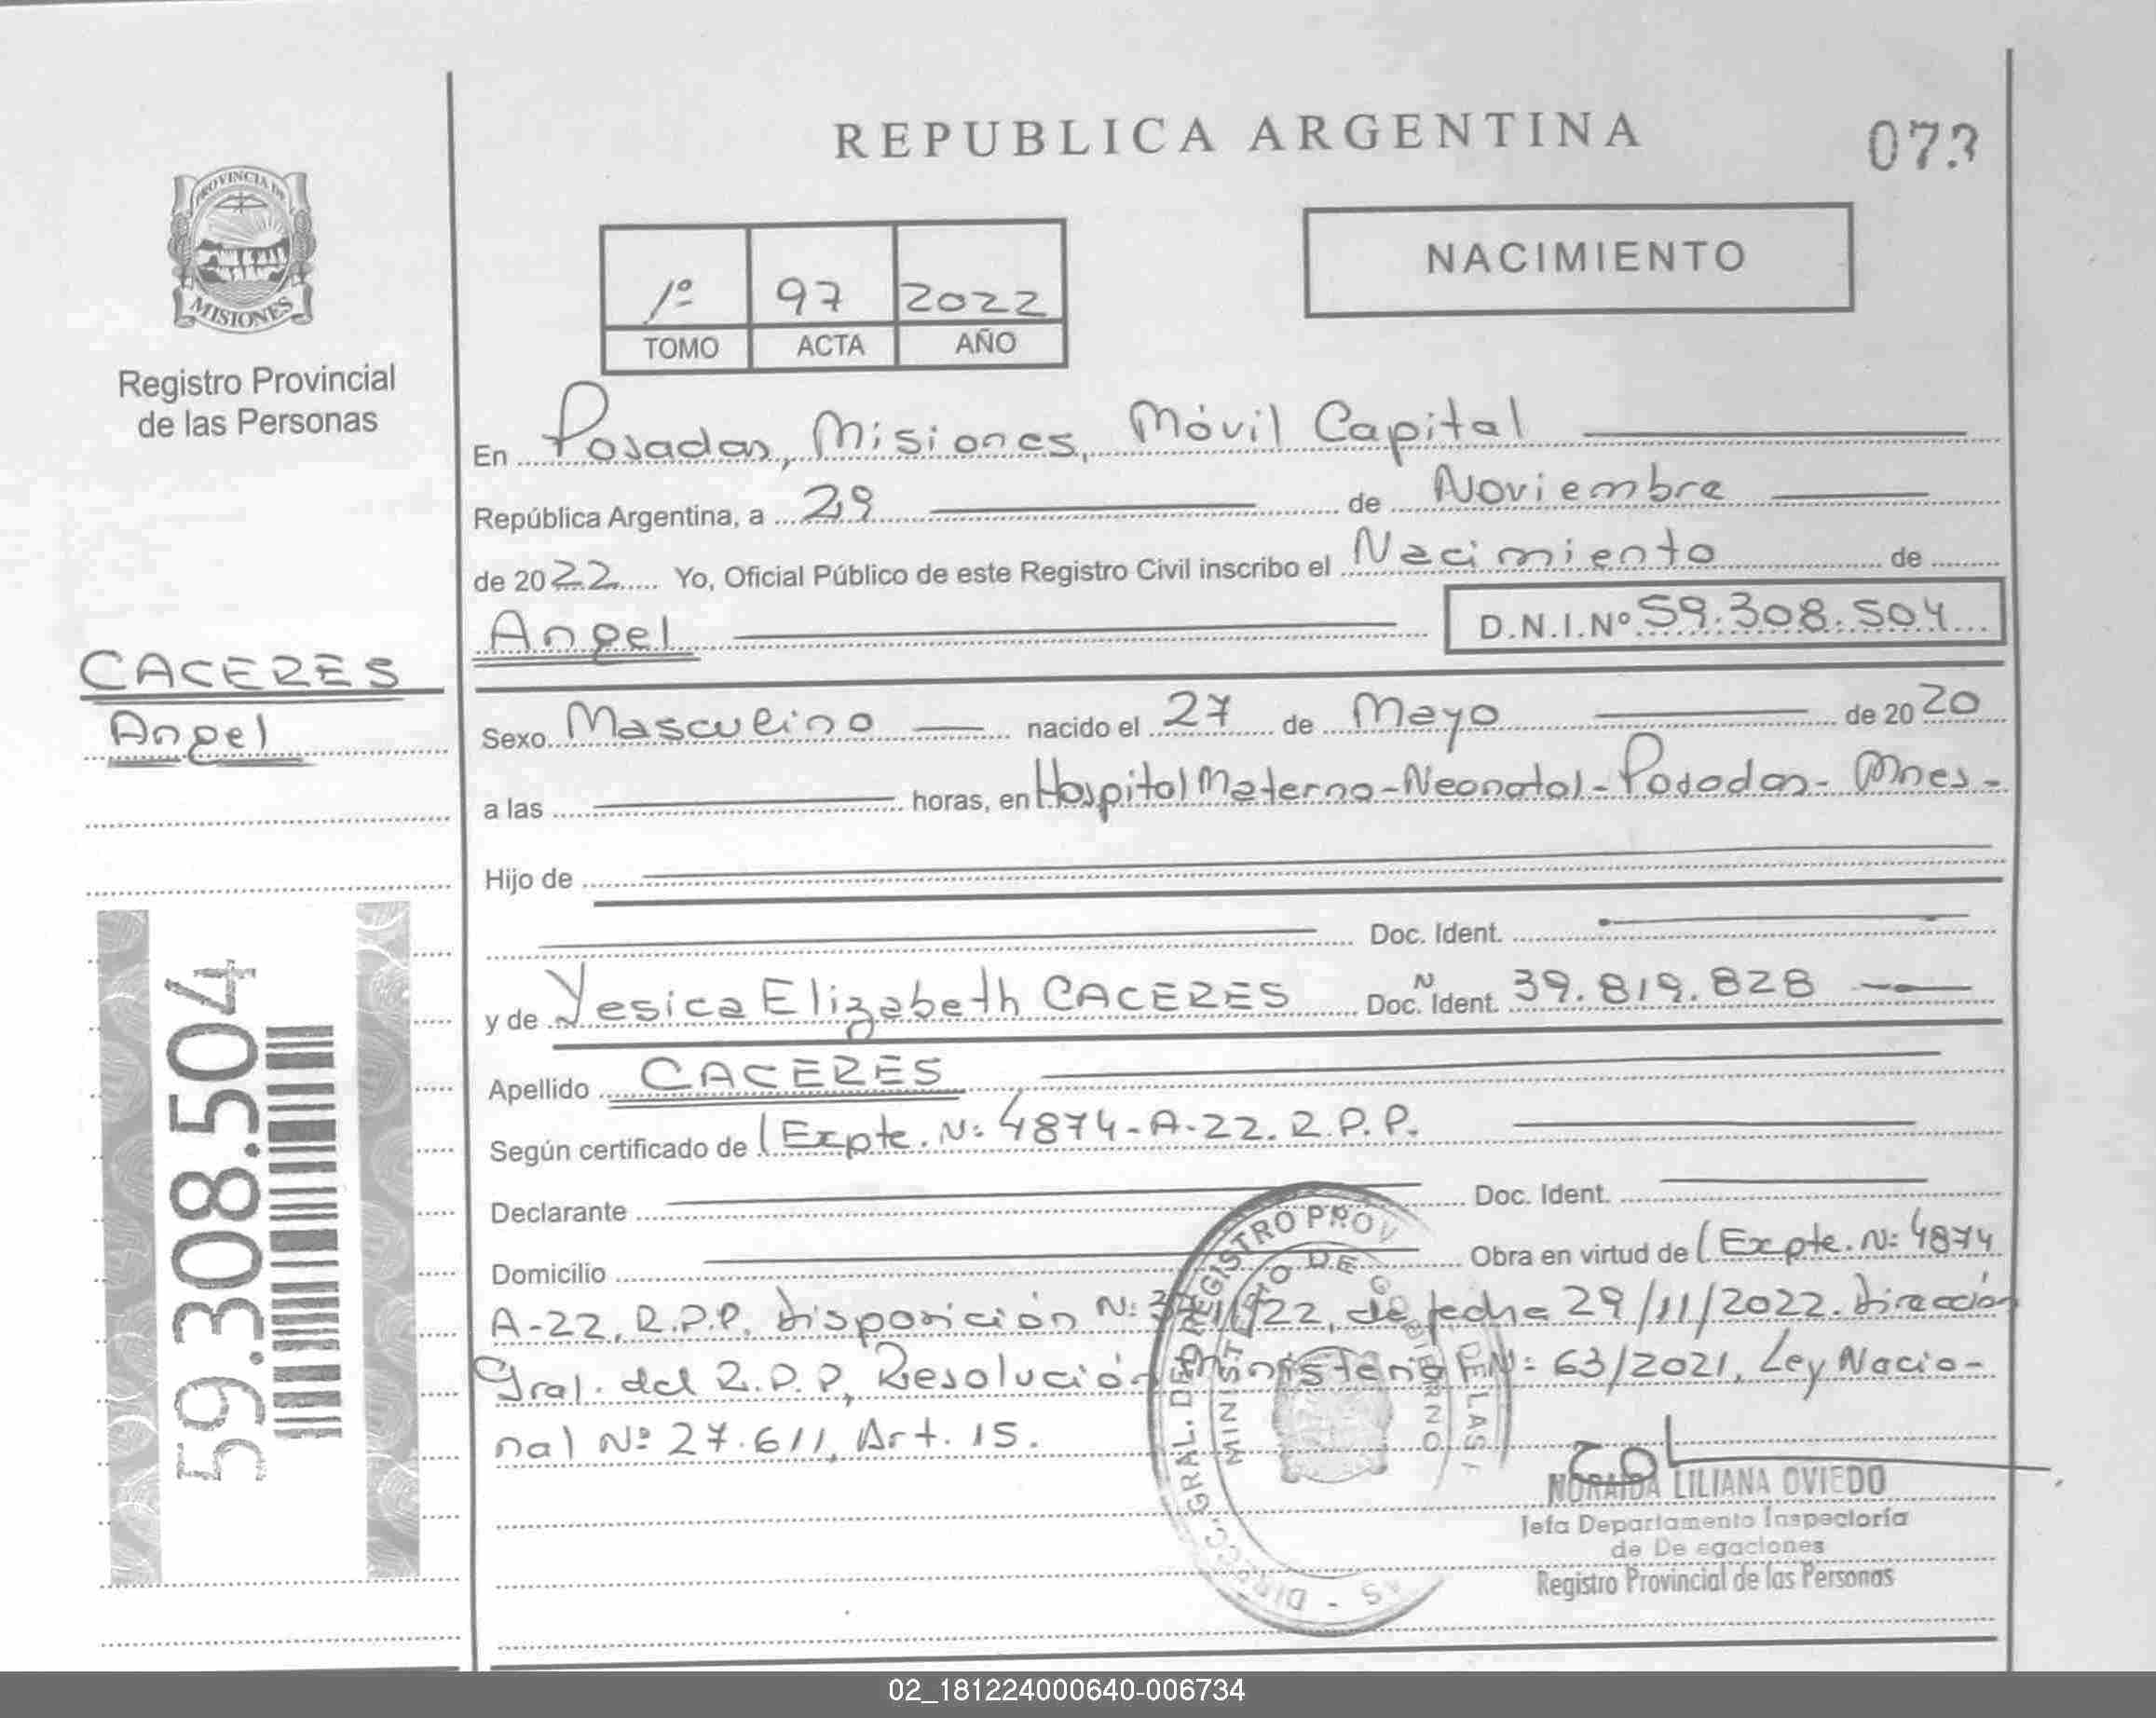 REPUBLICA ARGENTINA
PROVINCIA DE
MISIONES
Registro Provincial
de las Personas
1º 97 2022
TOMO ACTA AÑO
NACIMIENTO
En Posadas, Misiones, Móvil Capital
República Argentina, a 29 de Noviembre
de 2022 Yo, Oficial Público de este Registro Civil inscribo el Nacimiento de
Angel D.N.I.Nº 59.308.504
CACERES
Angel
Sexo Masculino nacido el 27 de Mayo de 2020
a las horas, en Hospital Materno-Neonatal-Posadas-Mnes-
Hijo de
Doc. Ident.
y de Yesica Elizabeth CACERES Doc. Ident. N 39.819.828
Apellido CACERES
Según certificado de (Expte. N: 4874-A-22. R.P.P.
Declarante Doc. Ident.
Domicilio Obra en virtud de (Expte. N: 4874
A-22, R.P.P. Disposición N: /22, de fecha 29/11/2022. Dirección
Gral. del R.P.P, Resolución Ministerial N: 63/2021, Ley Nacio-
nal Nº 27.611, Art. 15.
59.308.504
DIRECC. GRAL. DEL REGISTRO PROV DE LAS
MINISTERIO DE GOBIERNO
NORAIDA LILIANA OVIEDO
Jefa Departamento Inspectoría
de De egaciones
Registro Provincial de las Personas
02_181224000640-006734